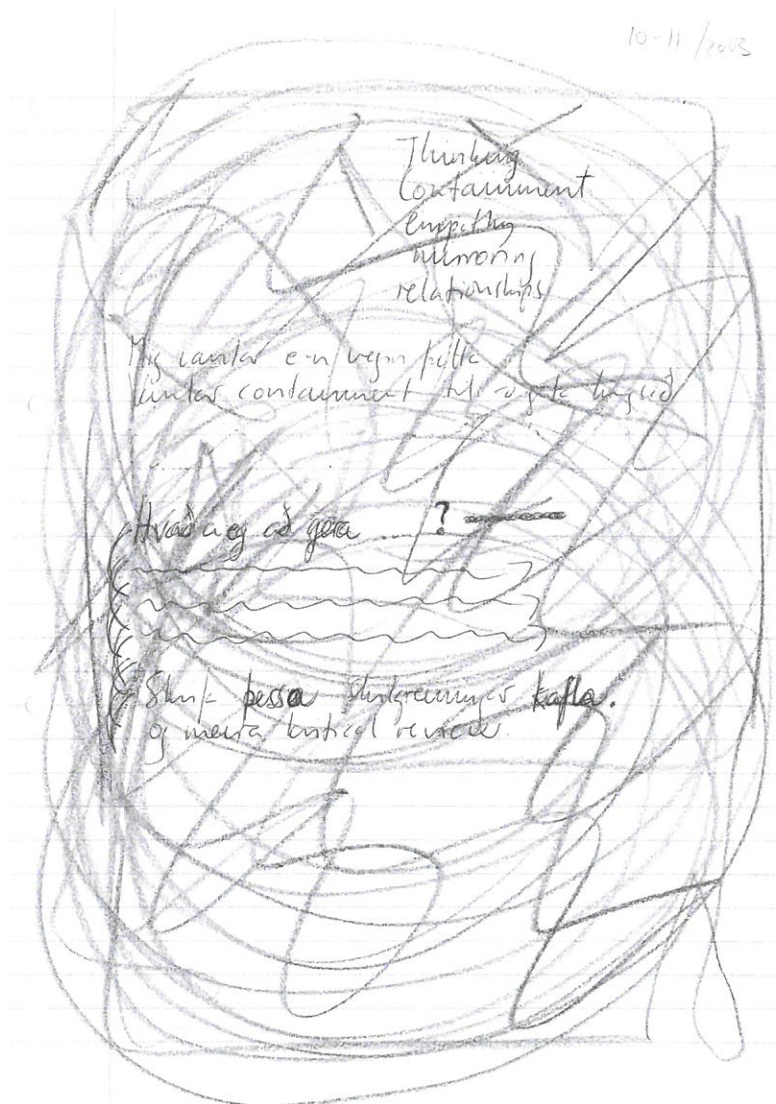 10-11 /2003
Thinking
Containment
empathy
mirroring
relationships
Mig vantar e-n veginn þetta
Vantar containment til að geta hugsað
Hvað á ég að gera ..... ?
þessa skilgreiningar kafla.
og meira kritical review.